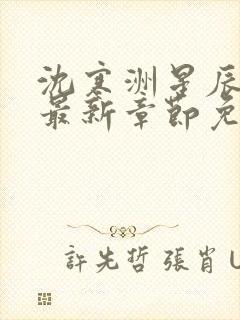 沈寒洲星辰
最新章節免
許先哲 張肖U